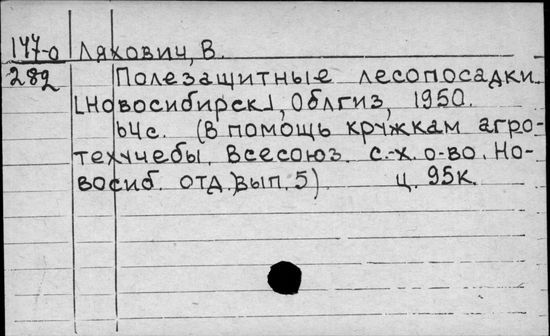 177-о Ляхович, В.
282 Полезащитные лесопосадки.
[Новосибирск], Облгиз, 1950.
64с. (В помощь кружкам агро-
техучебы. Всесоюз. с.-х. о-во. Но-
восиб. отд. Вып. 5). ц. 95к.